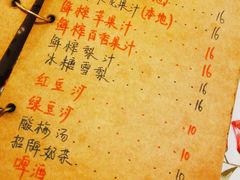 果汁(本地) 16
鲜榨苹果汁 16
鲜榨百香果汁 16
鲜榨梨汁 16
冰糖雪梨 16
红豆沙
绿豆沙 10
酸梅汤 10
招牌奶茶
啤酒